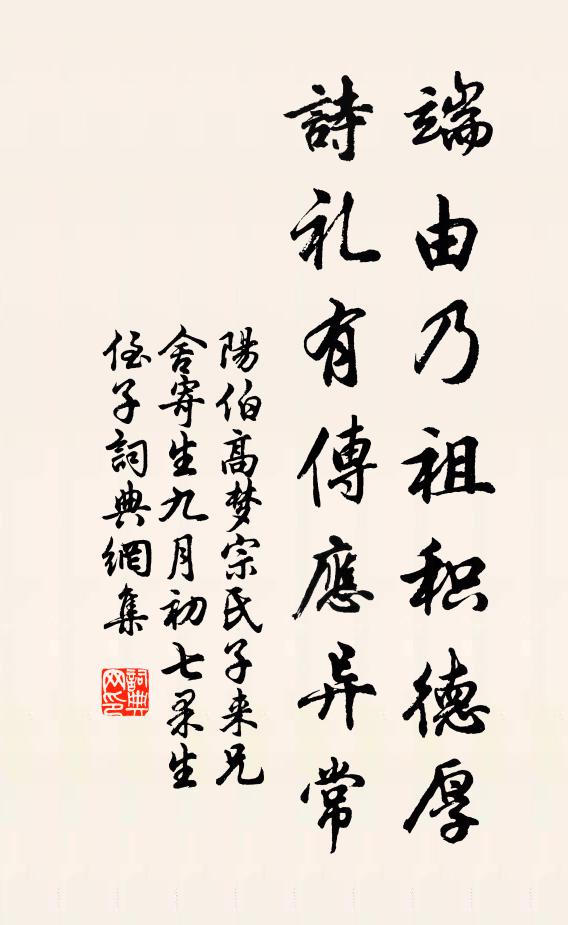 端由乃祖积德厚
詩礼有傳應异常
陽伯高梦宗氏子来兄
舍寄生九月初七果生
侄子詞典網集
詞典网印